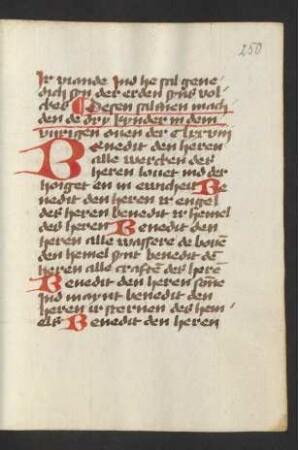 250
Ir viande Ind he sal gene
dich syn der erden syns vol
ckes Desen salmen mach
den de dry kynder in dem
vurigen ouen der clxxviij
Benedit den heren
alle wercken des
heren louet ind der
hoiget en in ewicheit Be
nedit den heren ir engel
des heren benedit ir hemel
des heren Benedit den
heren alle wassere de bouē
den hemel synt benedit dē
heren alle craftē des hrē
Benedit den heren sōne
ind maynt benedit den
heren ir sternen des hem
els Benedit den heren